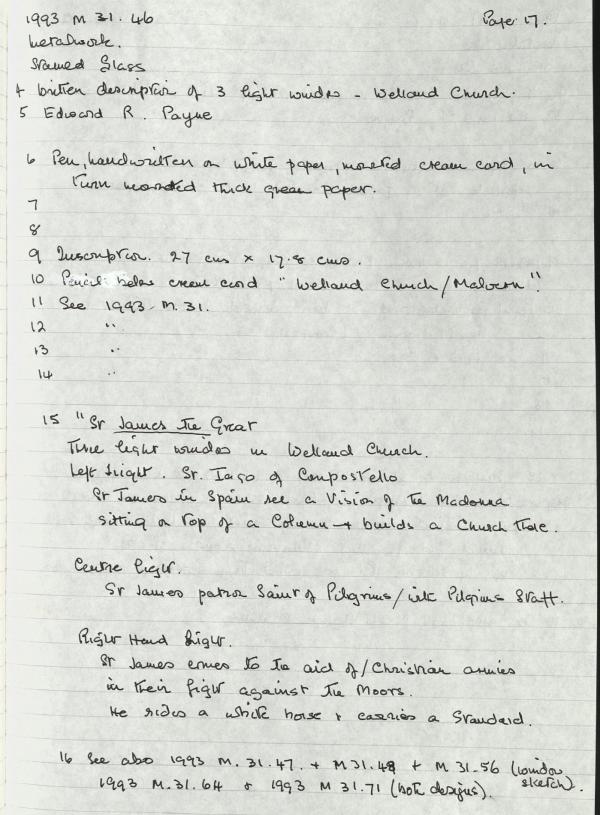 1993 M 31. 46 Page 17.
Metalwork.
Stained Glass
4 Written description of 3 light window - Welland Church.
5 Edward R. Payne
6 Pen, handwritten on white paper, mounted cream card, in
turn mounted thick green paper.
7
8
9 Inscription. 27 cms x 17.8 cms.
10 Pencil below cream card "Welland Church/Malvern".
11 See 1993 M. 31.
12 "
13 "
14 "
15 "St James the Great
Three light window in Welland Church.
Left Light. St. Iago of Compostello
St James in Spain see a Vision of the Madonna
sitting on top of a Column + builds a Church there.
Centre light.
St James patron Saint of Pilgrims/with Pilgrims Staff.
Right Hand Light.
St James comes to the aid of/Christian armies
in their fight against the Moors.
He rides a white horse + carries a Standard.
16 See also 1993 M. 31.47. + M 31.48 + M 31.56 (window sketch).
1993 M. 31.64 & 1993 M 31.71 (both designs).